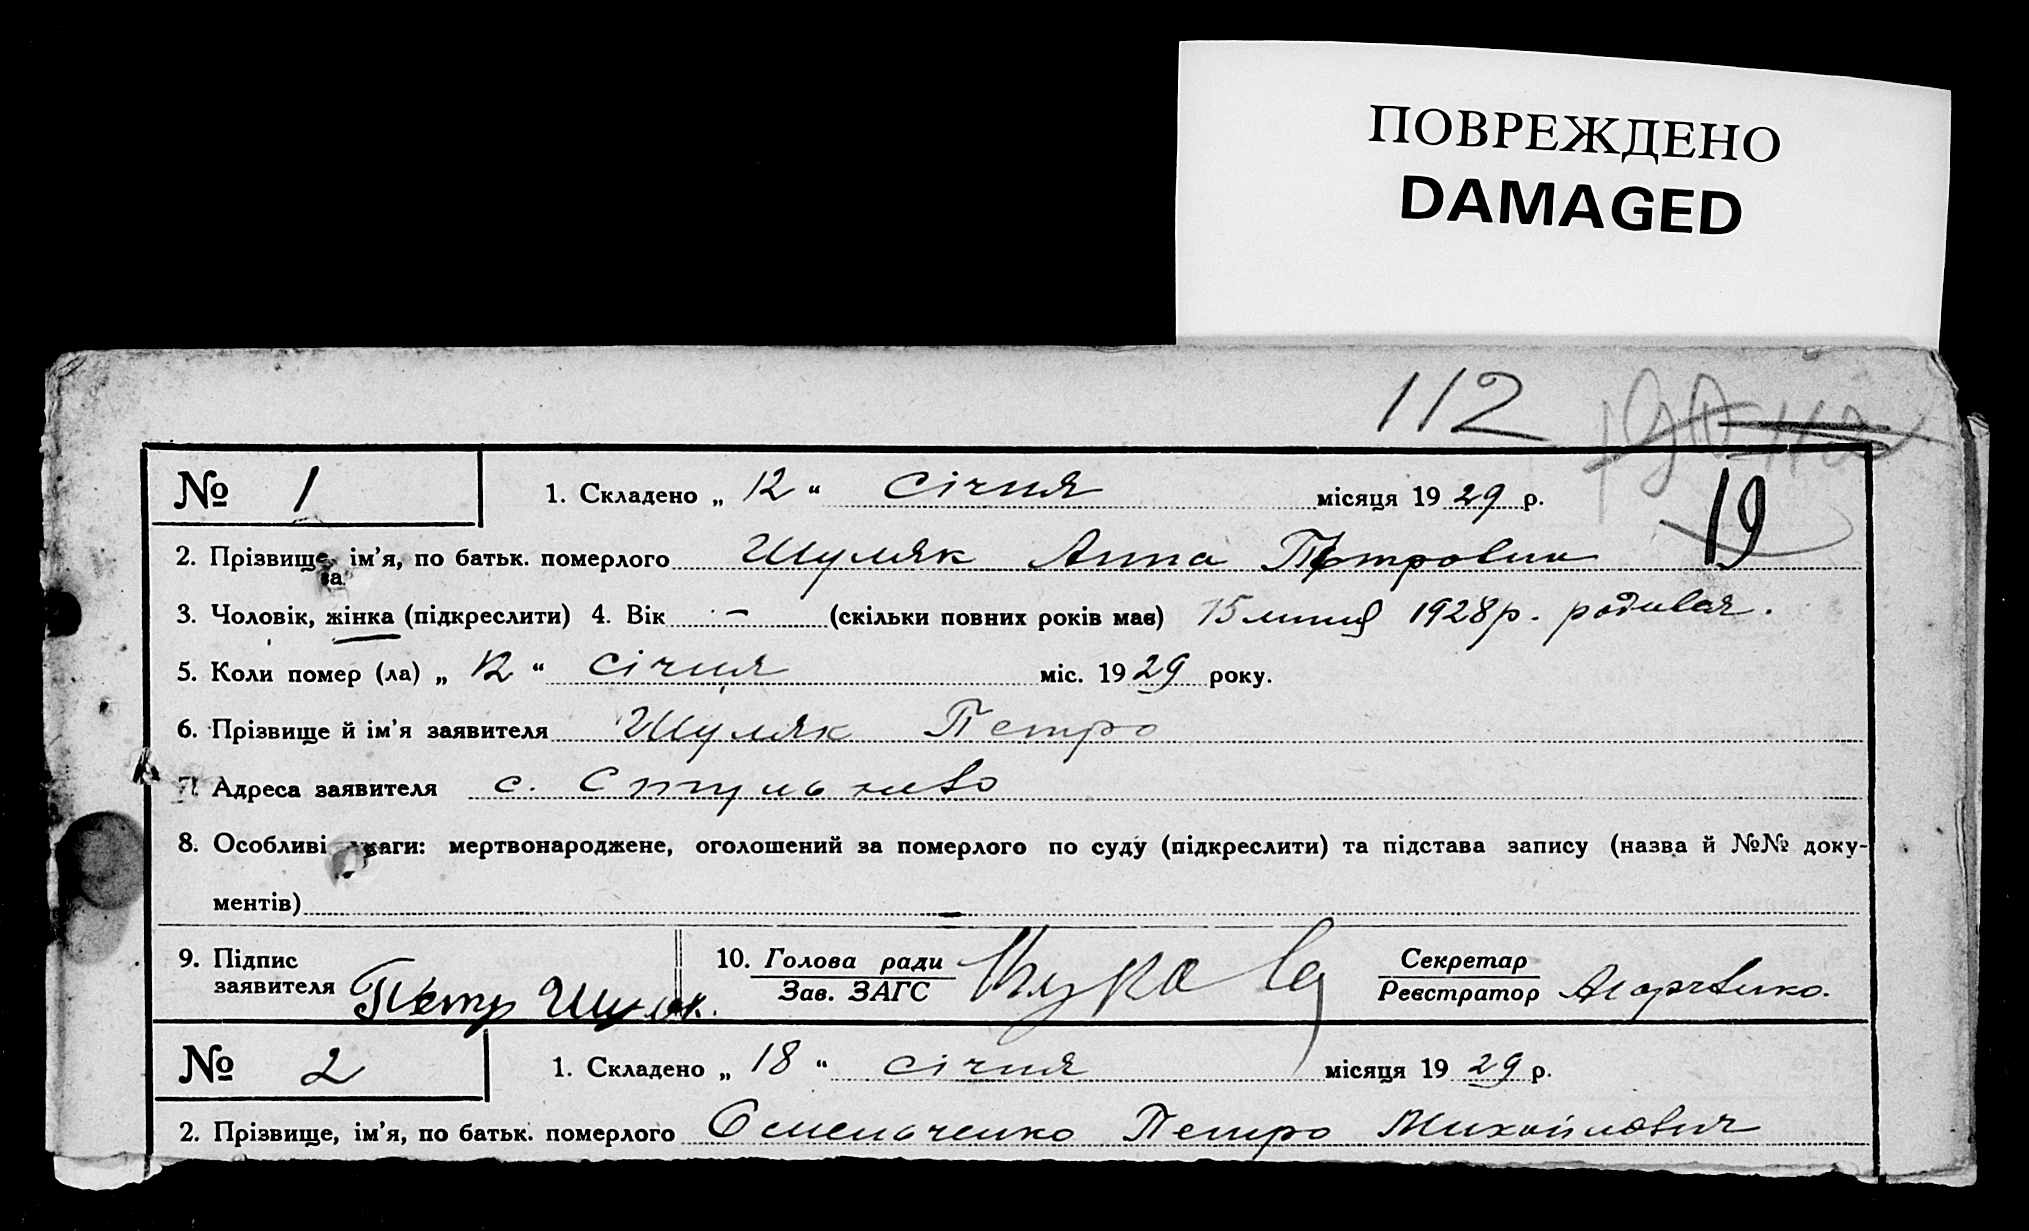 ПОВРЕЖДЕНО
DAMAGED
112
19
№ 1
1. Складено „ 12 “ січня місяця 1929 р.
2. Прізвище, ім’я, по батьк. померлого Шуляк Анна Петровна
3. Чоловік, жінка (підкреслити) 4. Вік - (скільки повних років має) 15 липня 1928 р. родилая.
5. Коли помер (ла) „ 12 “ січня міс. 1929 року.
6. Прізвище й ім’я заявителя Шуляк Петро
7. Адреса заявителя с. Стульнево
8. Особливі уваги: мертвонароджене, оголошений за померлого по суду (підкреслити) та підстава запису (назва й №№ доку-
ментів) -
9. Підпис заявителя Петр Шуляк.
10. Голова ради
Зав. ЗАГС
Секретар
Реєстратор
№ 2
1. Складено „ 18 “ січня місяця 1929 р.
2. Прізвище, ім’я, по батьк. померлого Семенченко Петро Михайлович